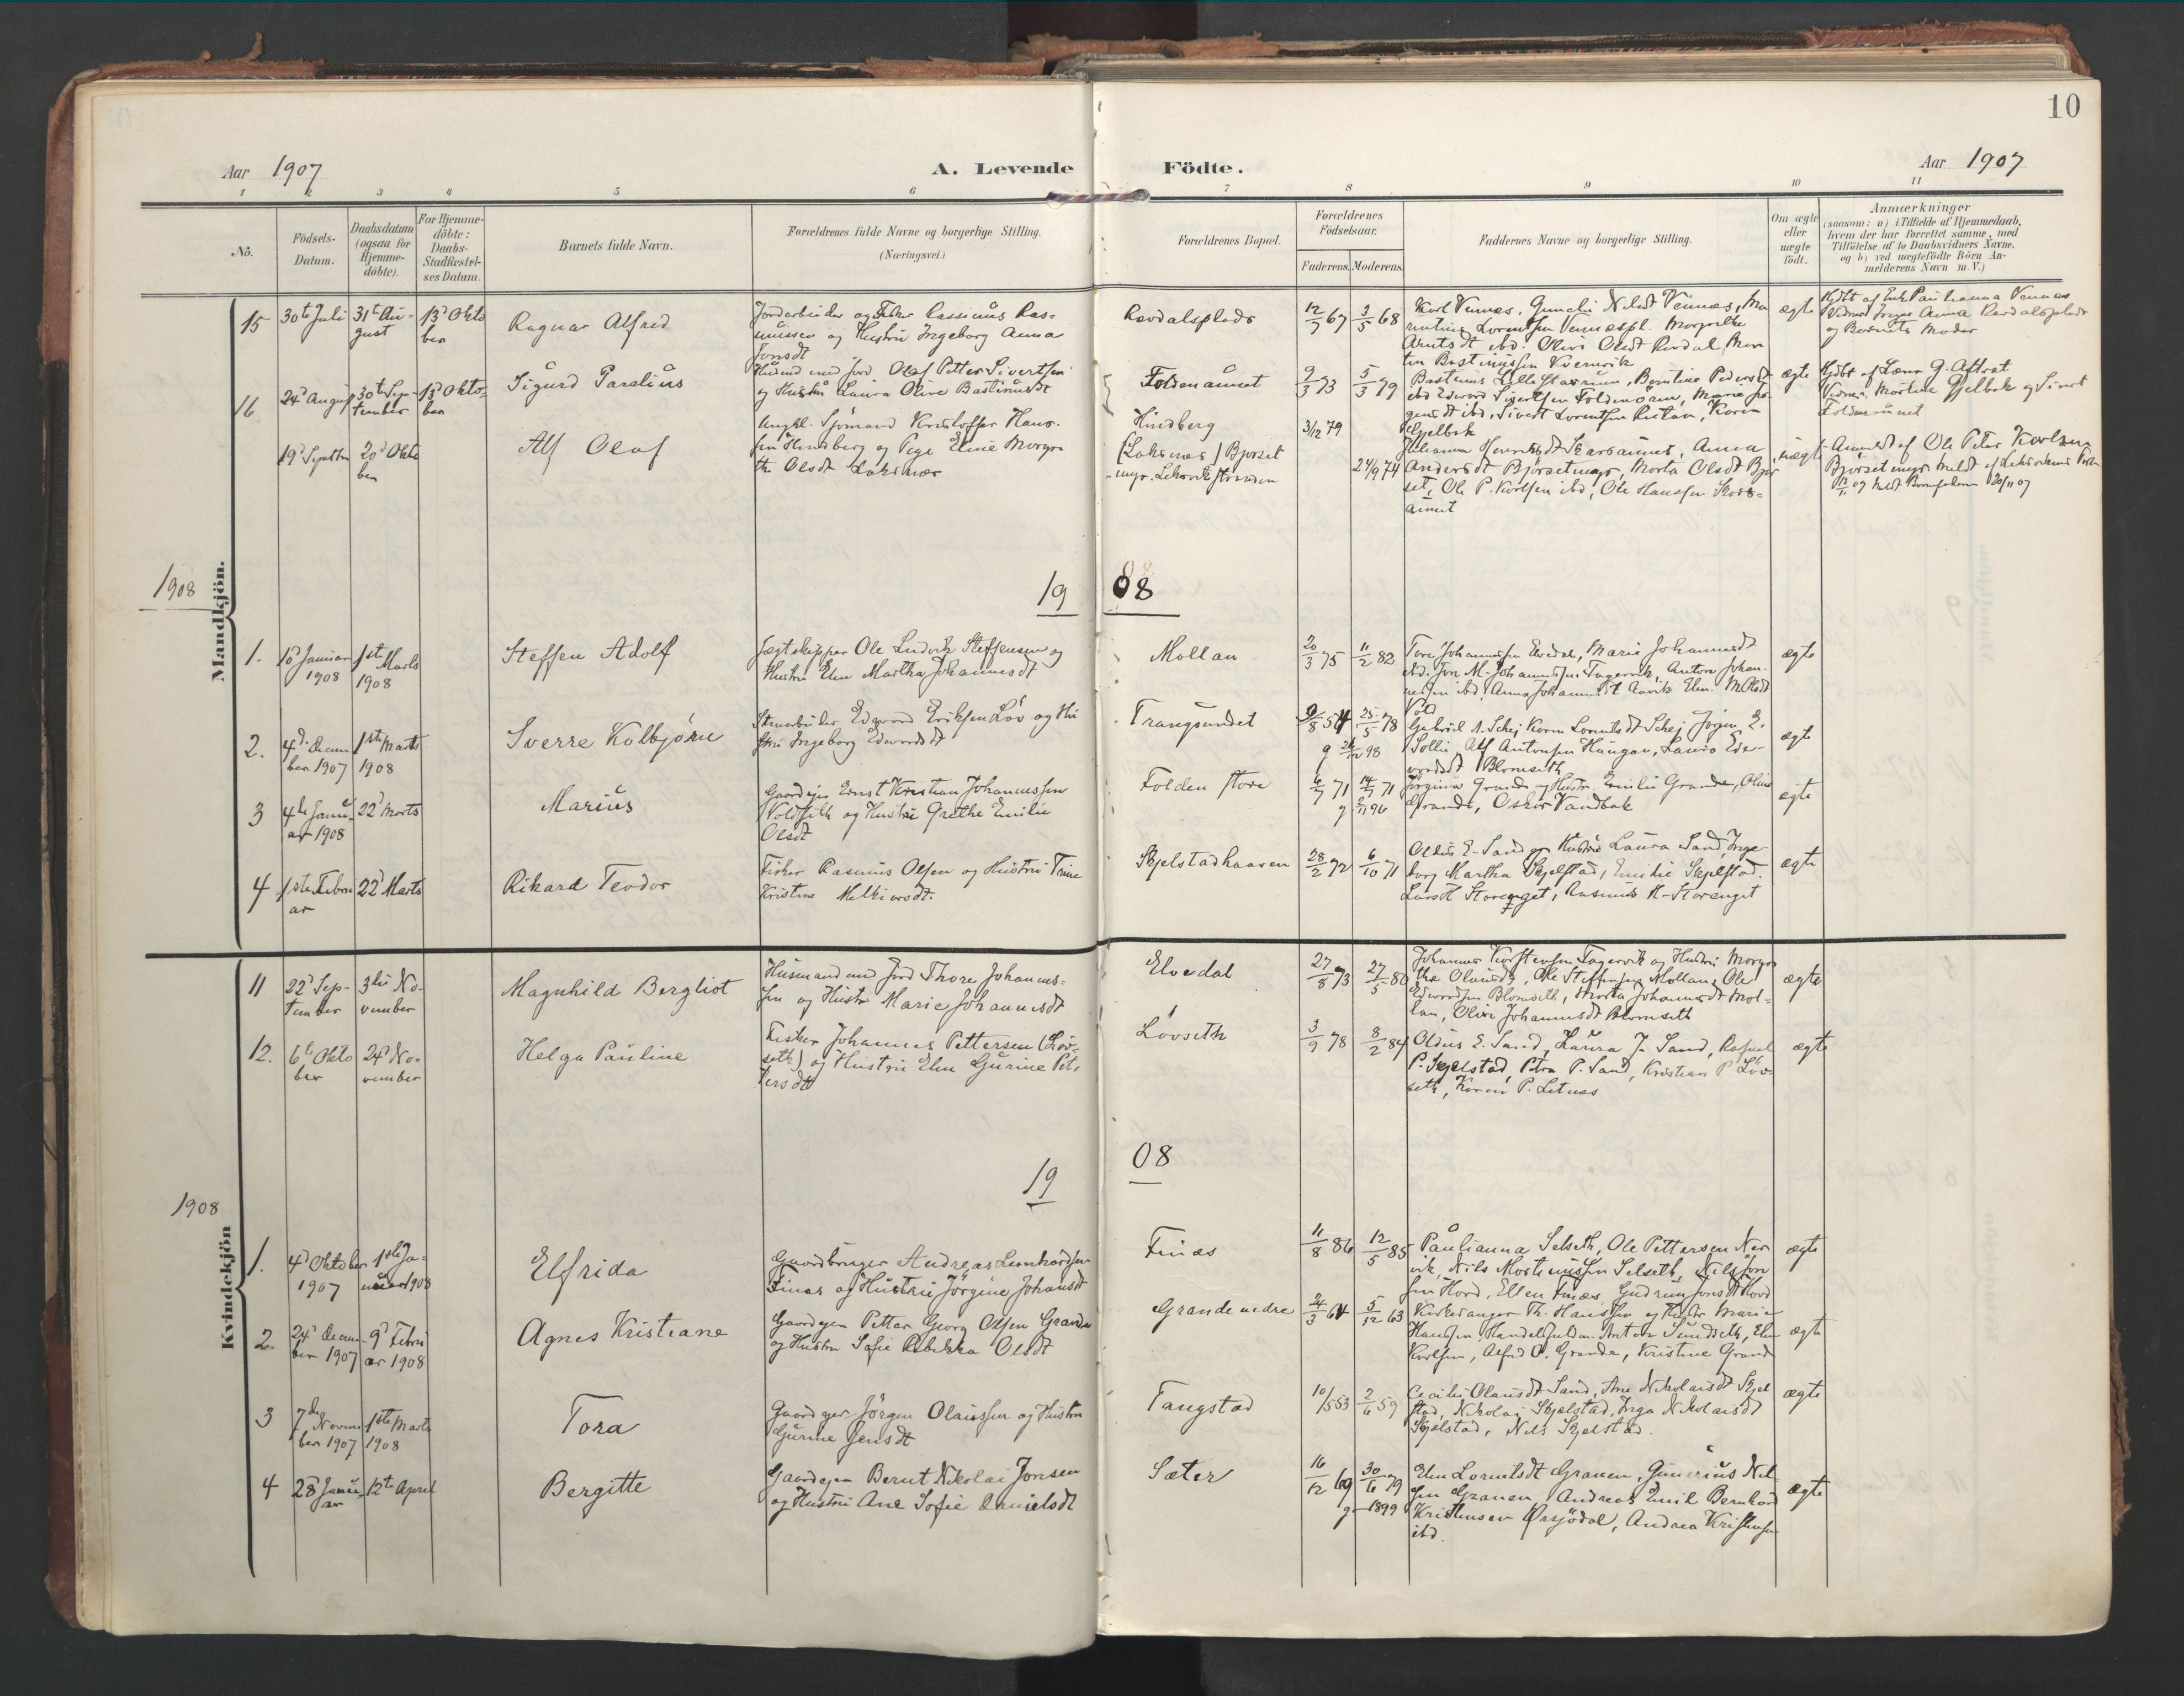 10
Aar 1907
A. Levende Födte.
Aar 1907
1 2 3 4 5 6 7 8 9 10 11
No.
Födsels-
Datum.
Daabsdatum
(ogsaa for
Hjemme-
döbte).
For Hjemme-
döbte:
Daabs-
Stadfæstel-
ses Datum.
Barnets fulde Navn.
Forældrenes fulde Navne og borgerlige Stilling.
(Næringsvei.)
Forældrenes Bopæl.
Forældrenes
Födselsaar.
Faderens. Moderens.
Faddernes Navne og borgerlige Stilling.
Om ægte
eller
uægte
födt.
Anmærkninger
(saasom: a) i Tilfælde af Hjemmedaab,
hvem der har forrettet samme, med
Tilföielse af to Daabsvidners Navne.
og b) ved uægtefödte Börn An-
melderens Navn m. V.)
Mandkjön.
15
30te Juli
31te Au-
gust
13d Okto
ber
Ragnar Alfred
Jordarbeider og Fisker Rassmus Ras-
mussen og Hustru Ingeborg Anna
Jonsdt
Rærdalsplads
12/7 67
3/5 68
Karl Vennes, Gunelie Nilsdt Vennæs, Ma
rentine Lorentsen Vennespl. Margrethe
Arntsdt ibd. Olive Olsdt Rerdal, Mor
ten Bastiansen Kvernvik
ægte
Hjdbt af Enke Paulianna Vennes
Vidner Inger Anna Rerdalsplads
og Barnets Moder
16
24d August
30te Sep-
tember
13d Okto-
ber
Sigurd Parelius
Husmd med jord Olaf Petter Sivertsen
og Hustru Laura Olive Bastiansdt
Foldenaunet
9/3 73
5/3 79
ægte
Foldenaunet
19d Septbr
20d Okto
ber
Alf Olaf
Ungkl. Sjömand Kristoffer Hans-
sen Hindberg og Pige Eline Margre
the Olsdt Laksnes
Hindberg
(Laksnes) Bjørset
-myr. Leksvikstranden
3/12 79
24/9 74
Andersdt Bjørsetmyr, Marta Olsdt Bjør
set, Ole P. Karlsen ibd, Ole Hanssen Skors-
aunet
uægte
Anmeldt af Ole Peter Karlsen
Bjørsetmyr
1908
19 08
1.
18 Januar
1908
1ste Marts
1908
Steffen Adolf
Jægtskipper Ole Ludvik Steffensen og
Hustru Elen Martha Johannesdt
Mollan
20/3 75
11/2 82
Tore Johannessen Elvedal, Marie Johannesdt
ibd. Jon M. Johannessen Fagervik, Anton Johan-
nessen ibd, Anna Johannesdt Aavik Elen M Olsdt
Vold
ægte
2.
4d Decem
ber 1907
1ste Marts
1908
Sverre Kolbjörn
Stenarbeider Edvard Eriksen Löv og Hu
stru Ingeborg Edvardsdt
Trangsundet
9/8 54
25/5 78
Gabriel A. Schej Karen Lorentsdt Schej Jørgen E.
Sollie, Alf Antonsen Haugan, Laura Ed-
vardsdt Blomseth
ægte
3
4de Janu-
ar 1908
22d Marts
Marius
Gaardejer Ernst Kristian Johannessen
Voldseth og Hustru Grethe Emilie
Olsdt
Folden store
6/7 71
14/7 71
Jörginus Grande og Hustr. Emilie Grande, Oline
Grande, Oskar Vandbak
ægte
4
1ste Febru
ar
22d Marts
Rikard Teodor
Fisker Rasmus Olsen og Hustru Trine
Kristine Melkiorsdt.
Skjelstadhaaven
28/2 72
6/10 71
Oldus E. Sand og Hustru Laura Sand, Inge-
borg Martha Skjelstad, Emilie Skjelstad.
Lars H Storenget, Rasmus H-Storenget
ægte
Kvindekjön
11
22d Sep-
tember
3die No-
vember
Magnhild Bergliot
Husmand med Jord Thore Johannes-
sen og Hustru Marie Johannesdt
Elvedal
27/8 73
27/5 80
Johannes Karstensen Fagervik og Hustru Margre
the Olausdt, Ole Steffensen Mollan, Ole
Edvardsen Blomseth, Marta Johannesdt Mol-
lan, Olive Johannesdt Blomseth
ægte
12.
6te Okto
ber
24d No-
vember
Helga Pauline
Fisker Johannes Pettersen (Löv-
seth) og Hustru Elen Gurine Pet-
tersdt
Lövseth
3/9 78
8/2 84
Oldus E. Sand, Laura J. Sand, Rafael
P. Skjelstad, Petra P. Sand, Kristian P Löv-
seth, Karen P. Letnes
ægte
1908
19 08
1.
4d Oktober
1907
1ste Ja-
nuar 1908
Elfrida
Gaardbruger Andreas Leonhardsen
Finæs og Hustru Jörgine Johansdt
Finæs
11/8 86
12/5 85
Paulianna Selseth, Ole Pettersen Ner
vik, Nils Martinussen Selseth, Nils Jon
sen Hord, Ellen Finæs, Gudrun Jonsdt Hord
ægte
2.
24d Decem
ber 1907
9d Febru
ar 1908
Agnes Kristiane
Gaardejer Petter Georg Olsen Grande
og Hustru Sofie Rebekka Olsdt
Grande nedre
24/3 64
5/12 63
Kirkesanger Th. Hanssen og Hustr Marie
Hanssen Handelsfuldm. Anton Sundseth, Elen
Karlsen, Alfred O. Grande, Kristine Grande
ægte
3
7de Novem
ber 1907
1ste Marts
1908
Tora
Gaardejer Jörgen Olaussen og Hustru
Gurine Jensdt
Tangstad
10/5 53
2/6 59
Cecilie Olausdt Sand, Ane Nikolaisdt Skjel
stad, Nikolai Skjelstad, Inga Nikolaisdt
Skjelstad, Nils Skjelstad.
ægte
4
28 Janu-
ar
12te April
Bergitte
Gaardejer Bernt Nikolai Jonsen
og Hustru Ane Sofie Danielsdt
Sæter
16/12 69
30/6 79
g. 1899
Elen Lorentsdt Granen, Gunerius Nil-
sen Granen, Andreas Emil Bernhard
Kristensen Ørsjödal, Andrea Kristensen
ibd.
ægte